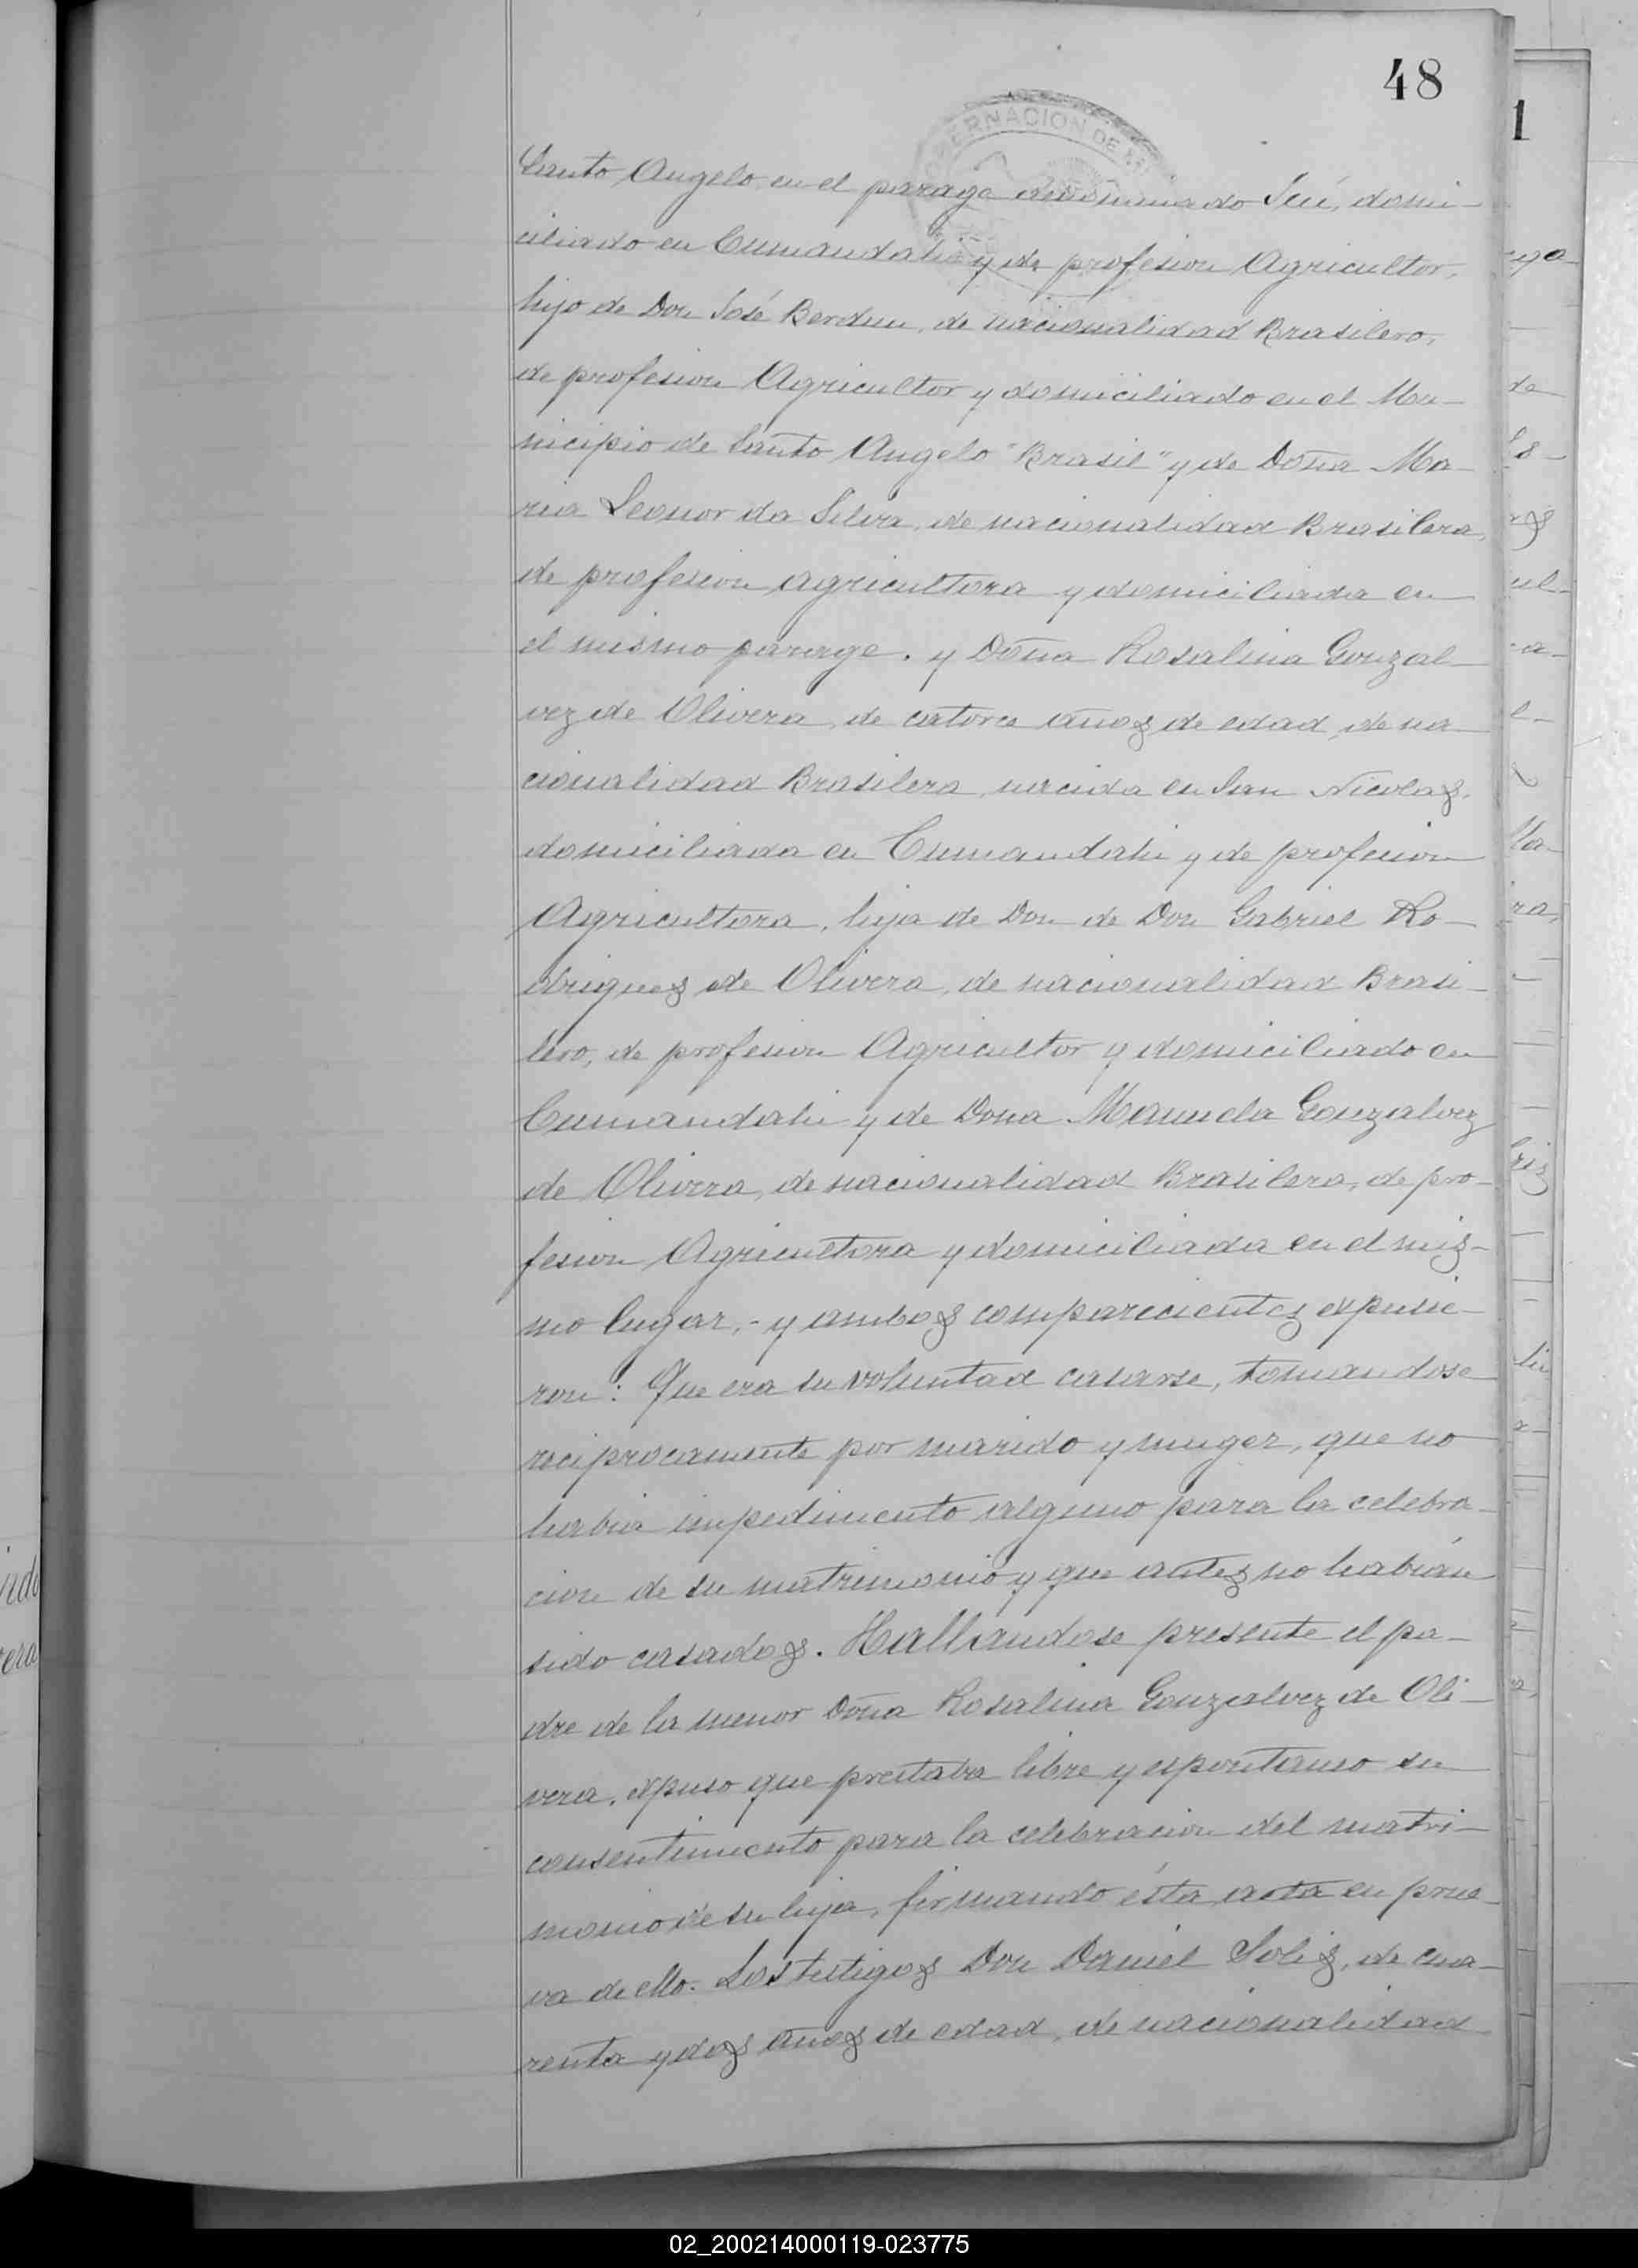 48
1
GOBERNACION DE
Santo Angelo en el parage denominado domi-
ciliado en Cumandahi y de profesion Agricultor,
hijo de Don José Berdun, de nacionalidad Brasilero,
de profesion Agricultor y domiciliado en el Mu-
nicipio de Santo Angelo "Brasil" y de Doña Ma-
ria Leonor da Silva, de nacionalidad Brasilera,
de profesion agricultora y domiciliada en
el mismo parage. y Doña Rosalina Gonzal-
vez de Olivera, de catorce años de edad, de na-
cionalidad Brasilera, nacida en San Nicolas,
domiciliada en Cumandahi y de profesion
Agricultora, hija de Don de Don Gabriel Ro-
drigues de Olivera, de nacionalidad Brasi-
lero, de profesion Agricultor y domiciliado en
Cumandahi y de Dona Manuela Gonzalvez
de Olivera, de nacionalidad Brasilera, de pro-
fesion Agricultora y domiciliada en el mis-
mo lugar,- y ambos comparecientes expusie-
ron: Que era su voluntad casarse, tomandose
reciprocamente por marido y muger, que no
habia impedimento alguno para la celebra-
cion de su matrimonio y que antes no habian
sido casados. Hallandose presente el pa-
dre de la menor Doña Rosalina Gonzalvez de Oli-
vera, expuso que prestaba libre y espontaneo su
consentimiento para la celebracion del matri-
monio de su hija, firmando ésta acta en prue-
va de ello. Los testigos Don Daniel Solis, de cua-
renta y dos años de edad, de nacionalidad
02_200214000119-023775